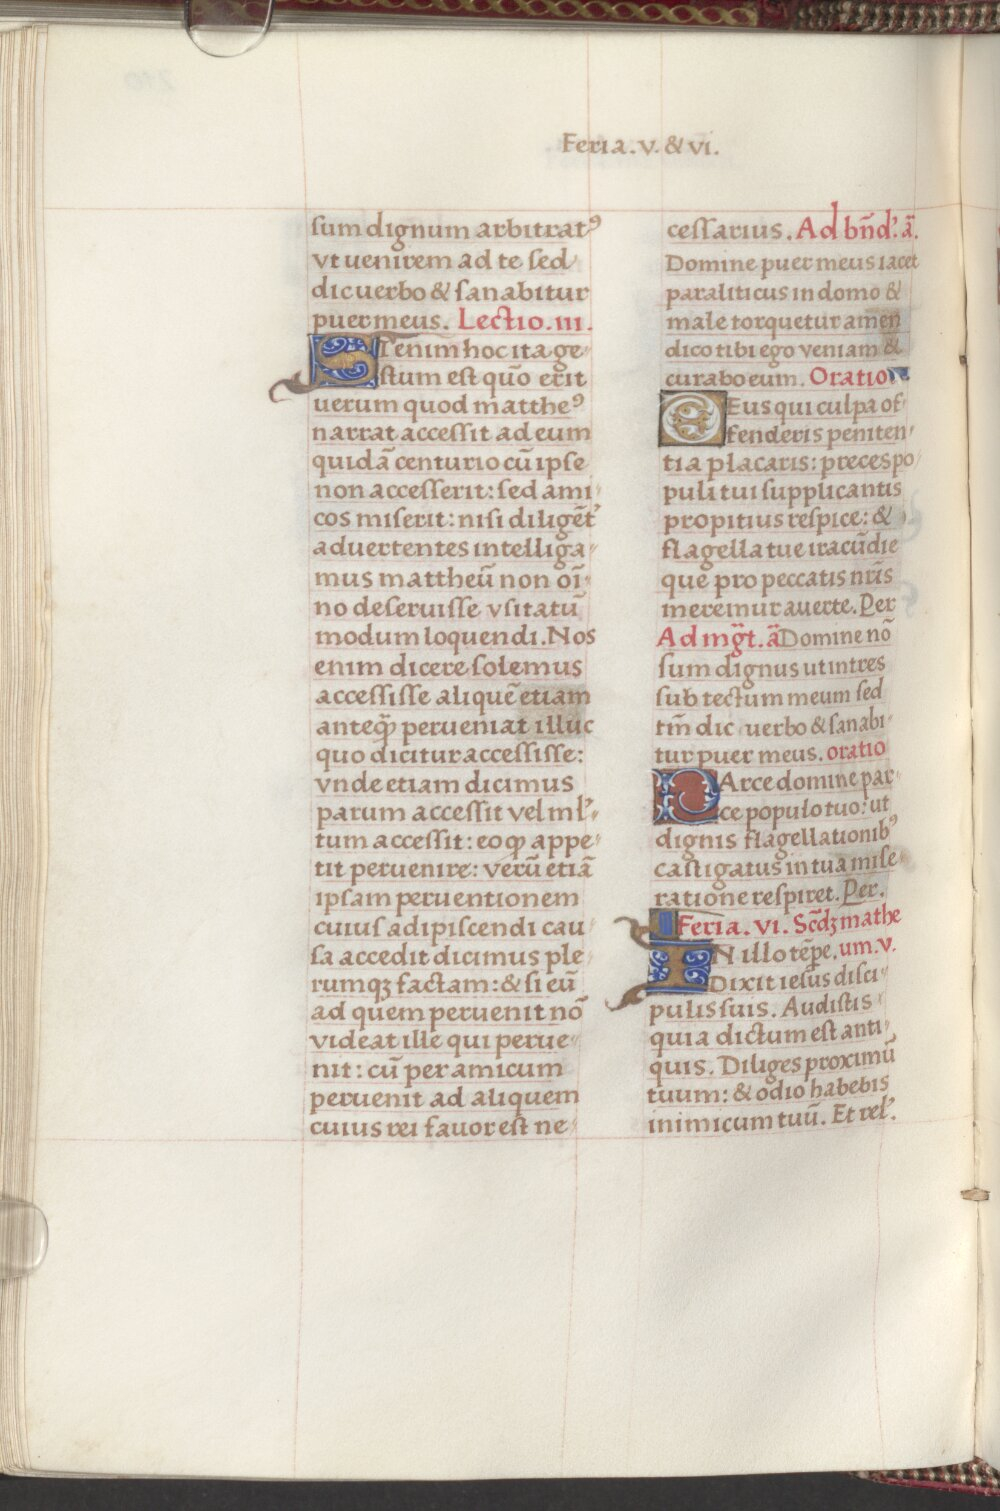 Feria.v.& vi.
sum dignum arbitratꝰ
vt uenirem ad te sed
dic uerbo & sanabitur
puer meus. Lectio.iii.
Si enim hoc ita ge-
stum est quō erit
uerum quod mattheꝰ
narrat accessit ad eum
quidā centurio cū ipse
non accesserit: sed ami-
cos miserit: nisi diligēt'
aduertentes intelliga-
mus mattheū non oī-
no deseruisse vsitatū
modum loquendi. Nos
enim dicere solemus
accessisse aliquē etiam
anteꝙ̄ perueniat illuc
quo dicitur accessisse:
vnde etiam dicimus
parum accessit vel ml'-
tum accessit: eo ꝙ appe-
tit peruenire: verū etiā
ipsam peruentionem
cuius adipiscendi cau
sa accedit dicimus ple-
rumqꝫ factam: & si eū
ad quem peruenit nō
videat ille qui perue-
nit: cū per amicum
peruenit ad aliquem
cuius rei fauor est ne-
cessarius. Ad bñd'. ā.
Domine puer meus iacet
paraliticus in domo &
male torquetur amen
dico tibi ego veniam &
curabo eum. Oratio
Deus qui culpa of-
fenderis peniten-
tia placaris: preces po-
puli tui supplicantis
propitius respice: &
flagella tue iracūdie
que pro peccatis nr̄is
meremur auerte. Per
Ad mg̃t. ā Domine nō
sum dignus ut intres
sub tectum meum sed
tm̄ dic uerbo & sanabi-
tur puer meus. oratio
Parce domine par-
ce populo tuo: ut
dignis flagellationibꝰ
castigatus in tua mise-
ratione respiret. Per.
Feria. vi. Scd̄ꝫ mathe
In illo tēpe. um. v.
Dixit iesus disci-
pulis suis. Audistis
quia dictum est anti-
quis. Diliges proximū
tuum: & odio habebis
inimicum tuū. Et rel'.